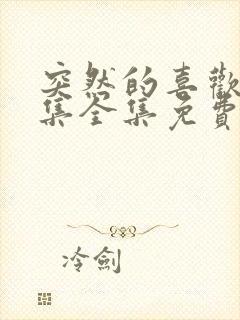 突然的喜歡
集全集免費
冷劍